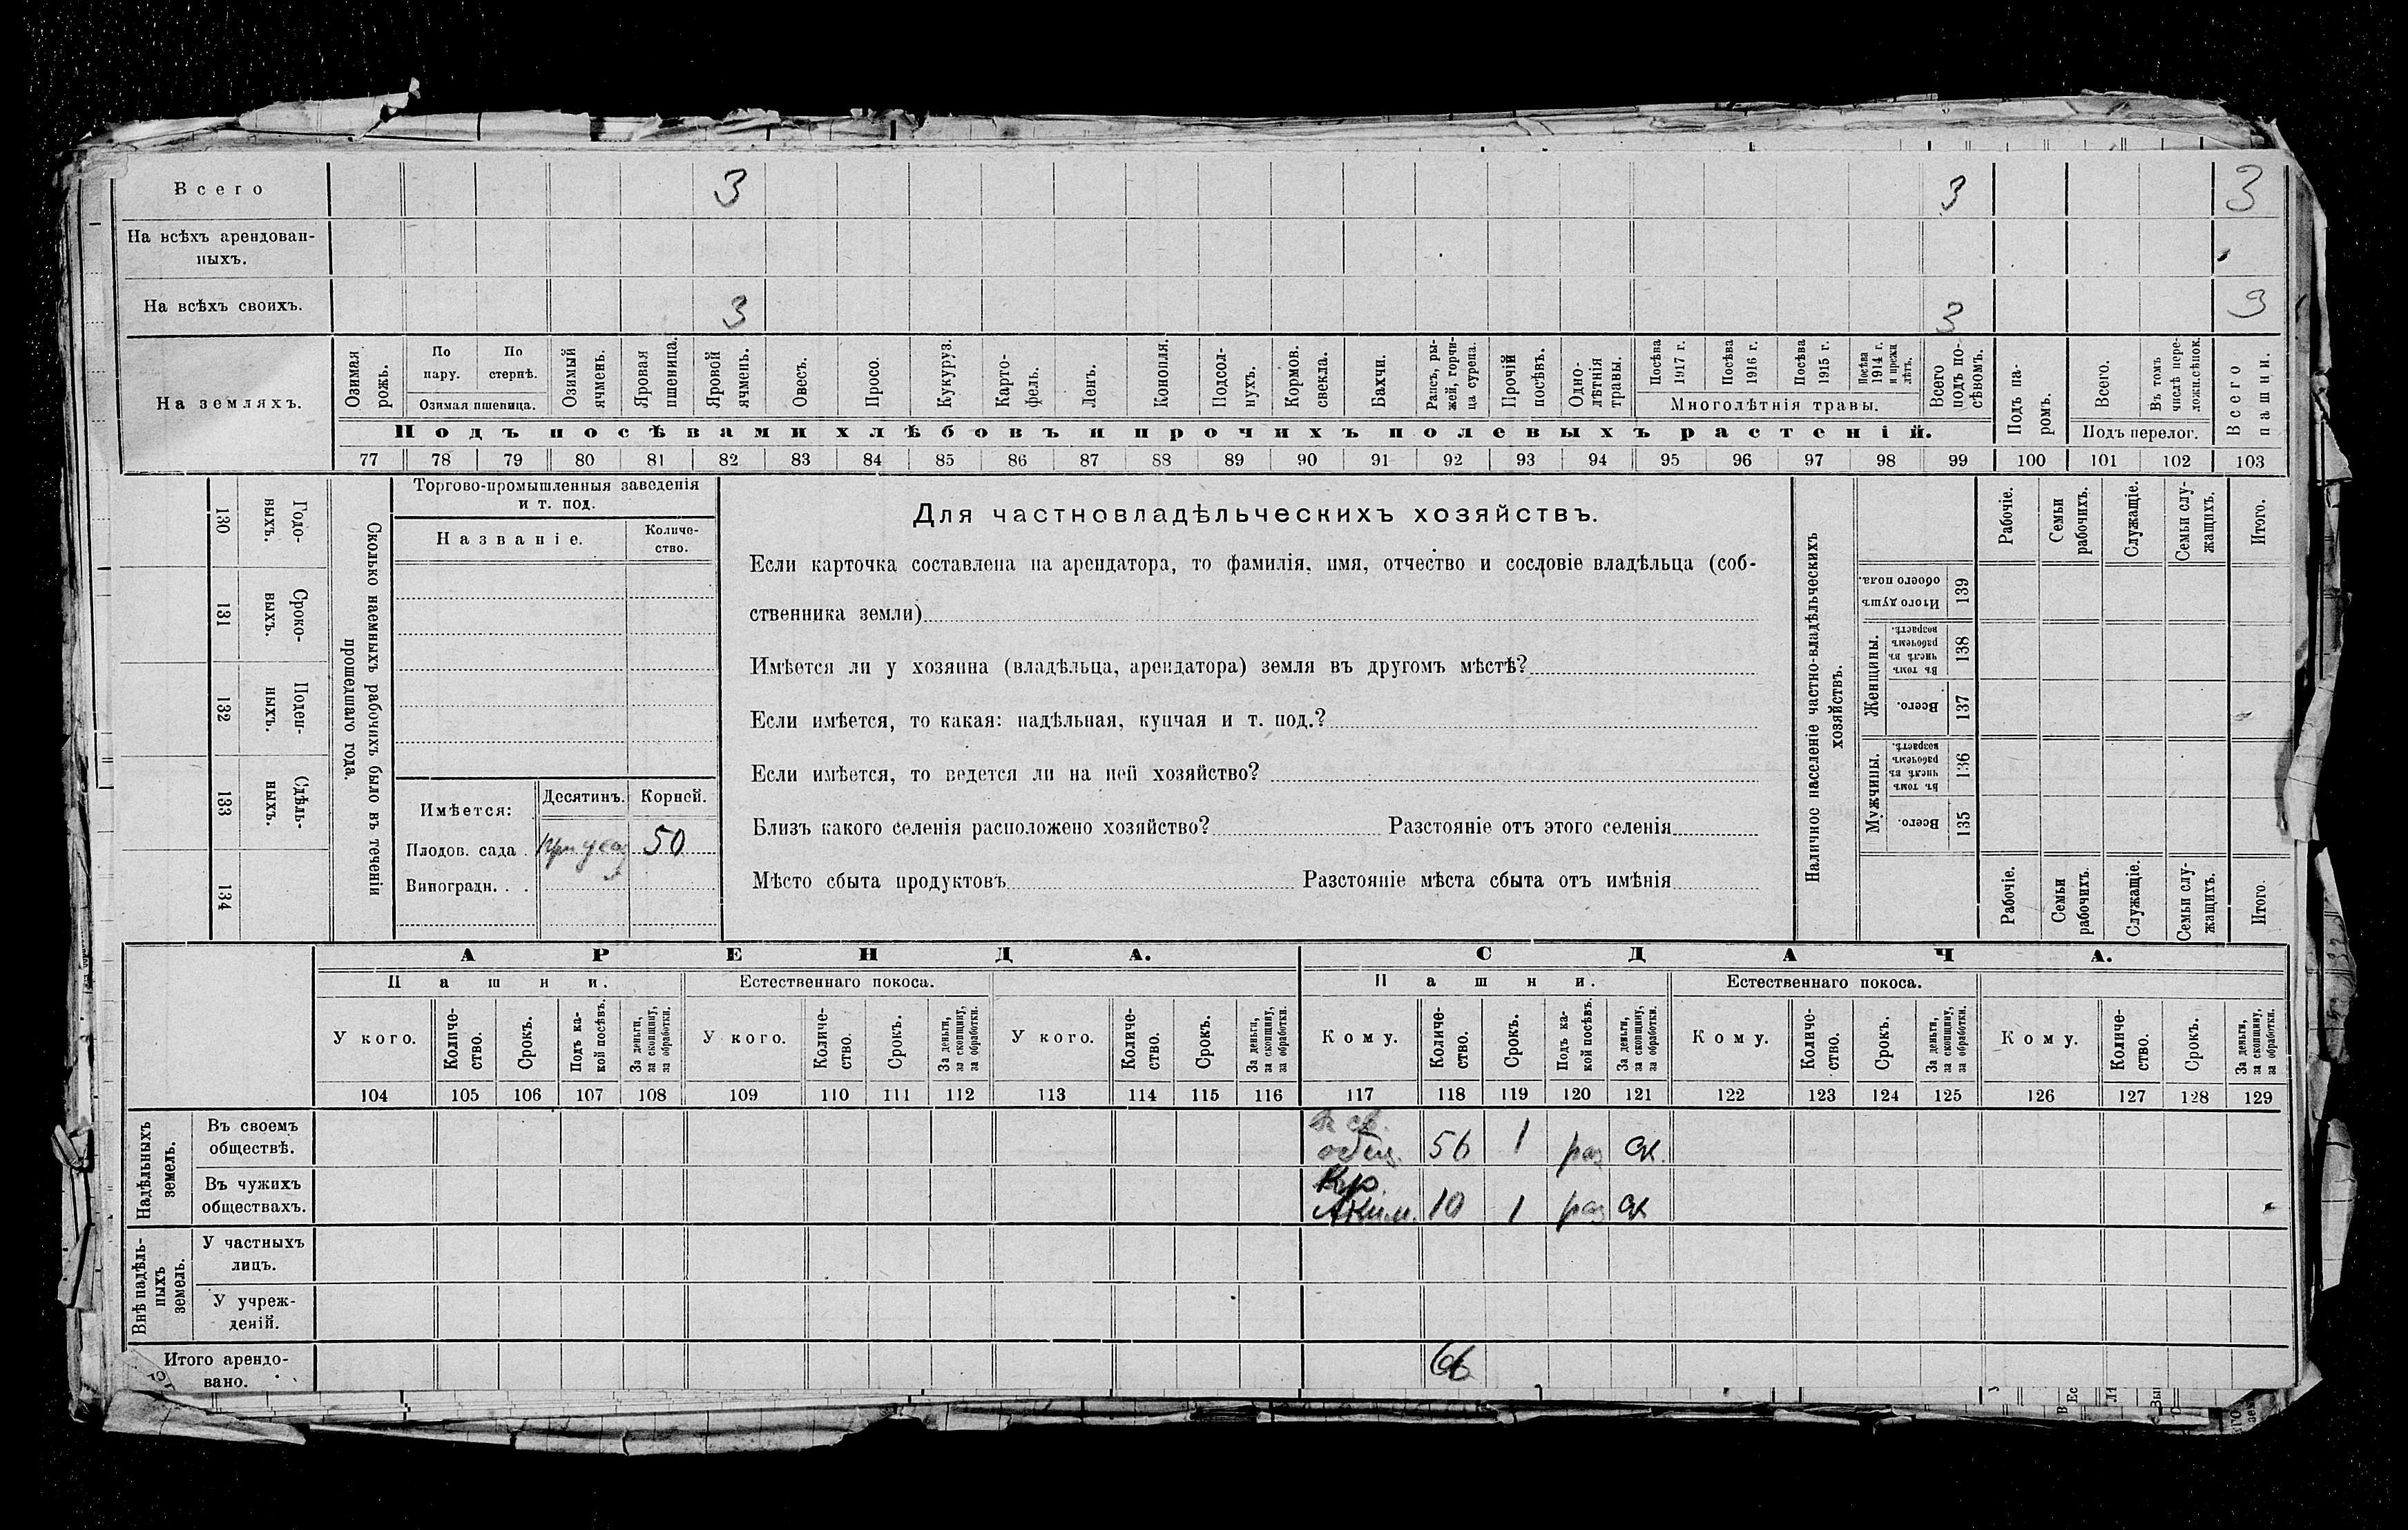 Всего 3 3 3
На всѣхъ арендован-
ныхъ.
На всѣхъ своихъ. 3 3 3
На земляхъ.
Озимая рожь.
По пару.
По стернѣ.
Озимая пшеница.
Озимый ячмень.
Яровая пшеница.
Яровой ячмень.
Овесъ.
Просо.
Кукуруз.
Карто-
фель.
Ленъ.
Конопля.
Подсол-
нухъ.
Кормов. свекла.
Бахчи.
Рапсъ, ры-
жей, горчи-
ца сурепа.
Прочій посѣвъ.
Одно-
лѣтнія
травы.
Посѣва 1917 г.
Посѣва 1916 г.
Посѣва 1915 г.
Посѣва 1914 г. и прежн лѣтъ.
Многолѣтнія травы.
Всего подъ по-
сѣвомъ.
Подъ па-
ромъ.
Всего.
Въ томъ числѣ пере-
ложн.сѣнок.
Подъ перелог.
Всего пашни.
Подъ посѣвами хлѣбовъ и прочихъ полевыхъ растеній.
77 78 79 80 81 82 83 84 85 86 87 88 89 90 91 92 93 94 95 96 97 98 99 100 101 102 103
Сколько наемныхъ рабочихъ было въ теченіи
прошедшаго года.
Годо-
выхъ.
130
Сроко-
выхъ.
131
Поден-
ныхъ.
132
Сдѣль-
ныхъ.
133
134
Торгово-промышленныя заведенія
и т. под.
Названіе.
Количе-
ство.
Имѣется:
Десятинъ.
Корней.
Плодов. сада . при усад 50
Виноградн. . .
Для частновладѣльческихъ хозяйствъ.
Если карточка составлена на арендатора, то фамилія, имя, отчество и сословіе владѣльца (соб-
ственника земли)
Имѣется ли у хозяина (владѣльца, арендатора) земля въ другомъ мѣстѣ?
Если имѣется, то какая: надѣльная, купчая и т. под.?
Если имѣется, то ведется ли на ней хозяйство?
Близъ какого селенія расположено хозяйство? Разстояніе отъ этого селенія
Мѣсто сбыта продуктовъ Разстояніе мѣста сбыта отъ имѣнія
Наличное населеніе частно-владѣльческихъ
хозяйствъ.
Рабочіе.
Семьи рабочихъ.
Служащіе.
Семьи слу-
жащихъ.
Итого.
Итого душъ обоего пола.
139
Женщины.
Въ томъ числѣ въ рабочемъ возрастѣ.
138
Всего.
137
Мужчины.
Въ томъ числѣ въ рабочемъ возрастѣ.
136
Всего.
135
Рабочіе.
Семьи рабочихъ.
Служащіе.
Семьи слу-
жащихъ.
Итого.
АРЕНДА. СДАЧА.
Пашни. Естественнаго покоса. Пашни. Естественнаго покоса.
У кого.
Количе-
ство.
Срокъ.
Подъ ка-
кой посѣвъ.
За деньги, за скопщину, за обработки.
У кого.
Количе-
ство.
Срокъ.
За деньги, за скопщину, за обработки.
У кого.
Количе-
ство.
Срокъ.
За деньги, за скопщину, за обработки.
Кому.
Количе-
ство.
Срокъ.
Подъ ка-
кой посѣвъ.
За деньги, за скопщину, за обработки.
Кому.
Количе-
ство.
Срокъ.
За деньги, за скопщину, за обработки.
Кому.
Количе-
ство.
Срокъ.
За деньги, за скопщину, за обработки.
104 105 106 107 108 109 110 111 112 113 114 115 116 117 118 119 120 121 122 123 124 125 126 127 128 129
Надѣльныхъ
земель.
Въ своемъ
обществѣ.
общ. 56 1 раз ск.
Въ чужихъ
обществахъ.
Кр
Аким. 10 1 раз ск
Внѣ надѣль-
ныхъ
земель.
У частныхъ
лицъ.
У учреж-
деній.
Итого арендо-
вано.
66